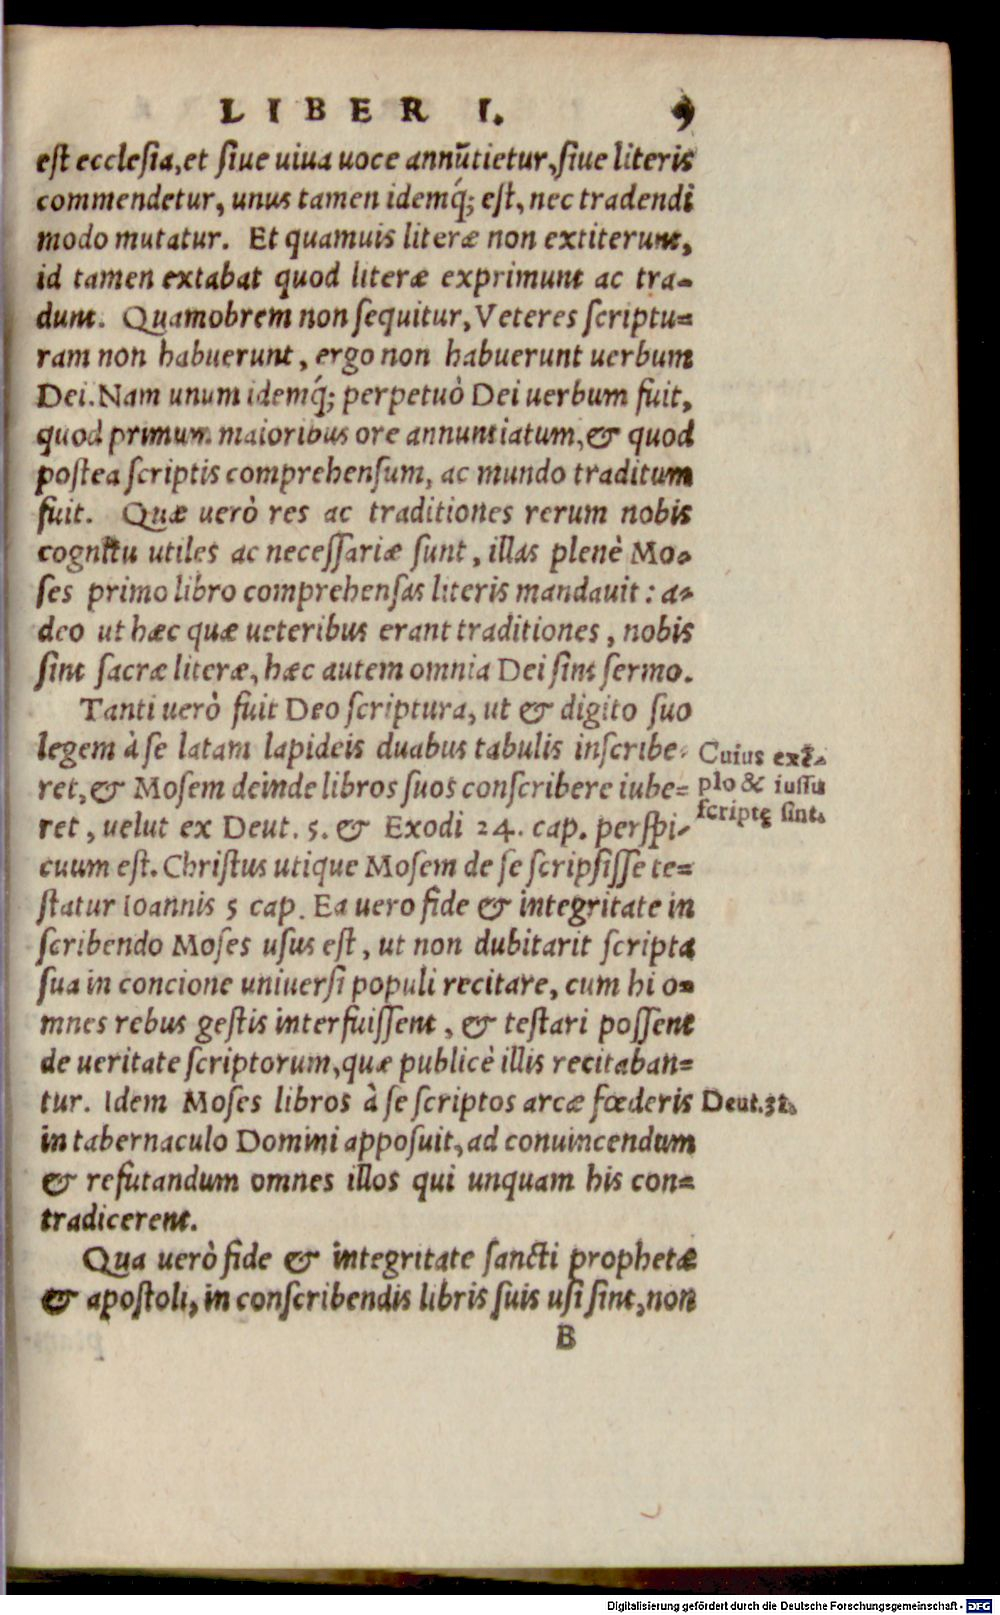 LIBER I. 9
est ecclesia, et siue uiua uoce annũtietur, siue literis
commendetur, unus tamen idemq́; est, nec tradendi
modo mutatur. Et quamuis literæ non extiterunt,
id tamen extabat quod literæ exprimunt ac tra-
dunt. Quamobrem non sequitur, Veteres scriptu=
ram non habuerunt, ergo non habuerunt uerbum
Dei. Nam unum idemq́; perpetuò Dei uerbum fuit,
quod primum maioribus ore annuntiatum, & quod
postea scriptis comprehensum, ac mundo traditum
fuit. Quæ uerò res ac traditiones rerum nobis
cognitu utiles ac necessariæ sunt, illas plenè Mo-
ses primo libro comprehensas literis mandauit: a-
deo ut hæc quæ ueteribus erant traditiones, nobis
sint sacræ literæ, hæc autem omnia Dei sint sermo.
Tanti uerò fuit Deo scriptura, ut & digito suo
legem à se latam lapideis duabus tabulis inscribe-
ret, & Mosem deinde libros suos conscribere iube=
ret, uelut ex Deut. 5. & Exodi 24. cap. perspi-
cuum est. Christus utique Mosem de se scripsisse te=
statur Ioannis 5 cap. Ea uero fide & integritate in
scribendo Moses usus est, ut non dubitarit scripta
sua in concione uniuersi populi recitare, cum hi o=
mnes rebus gestis interfuissent, & testari possent
de ueritate scriptorum, quæ publicè illis recitaban=
tur. Idem Moses libros à se scriptos arcæ fœderis
in tabernaculo Domini apposuit, ad conuincendum
& refutandum omnes illos qui unquam his con=
tradicerent.
Qua uerò fide & integritate sancti prophetæ
& apostoli, in conscribendis libris suis usi sint, non
B
Cuius exẽ-
plo & iussu
scriptę sint.
Deut. 31.
Digitalisierung gefördert durch die Deutsche Forschungsgemeinschaft - DFG